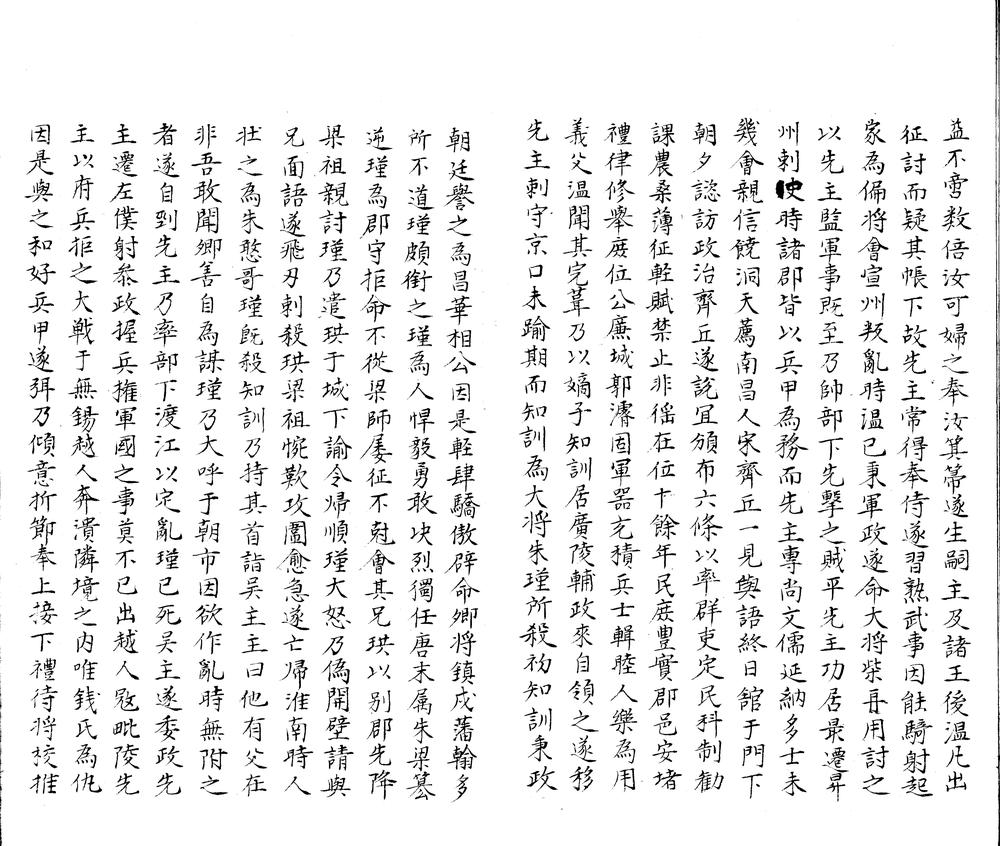 益不啻数倍汝可婦之奉汝箕箒遂生嗣主及諸王後温凡出
征討而疑其帳下故先主常得奉侍遂習熟武事因能騎射起
家為偏将會宣州叛亂時温已秉軍政遂命大将柴再用討之
以先主監軍事旣至乃帥部下先擊之賊平先主功居最遷昇
州刺史時諸郡皆以兵甲為務而先主專尚文儒延納多士未
幾會親信饒洞天薦南昌人宋齊丘一見與語終日舘于門下
朝夕諮訪政治齊丘遂說宜頒布六條以率群吏定民科制勸
課農桑薄征輕賦禁止非徭在位十餘年民庶豊實郡邑安堵
禮律修舉庶位公廉城郭濬固軍器充積兵士輯睦人樂為用
義父温聞其完葺乃以嫡子知訓居廣陵輔政來自領之遂移
先主刺守京口未踰期而知訓為大将朱瑾所殺初知訓秉政
朝廷譽之為昌華相公因是輕肆驕傲辟命卿将鎮戍藩翰多
所不道瑾頗銜之瑾為人悍毅勇敢决烈獨任唐末属朱梁簒
逆瑾為郡守拒命不從梁師屡征不尅會其兄珙以别郡先降
梁祖親討瑾乃遣珙于城下諭令帰順瑾大怒乃偽開壁請與
兄面語遂飛刃刺殺珙梁祖惋歎攻圍愈急遂亡帰淮南時人
壮之為朱憨哥瑾旣殺知訓乃持其首詣吴主主曰他有父在
非吾敢聞卿善自為謀瑾乃大呼于朝市因欲作亂時無附之
者遂自刭先主乃率部下渡江以定亂瑾已死吴主遂委政先
主遷左僕射叅政握兵權軍國之事莫不已出越人冦毗陵先
主以府兵拒之大戦于無錫越人奔潰隣境之内唯錢氏為仇
因是與之和好兵甲遂弭乃傾意折節奉上接下禮待将校推